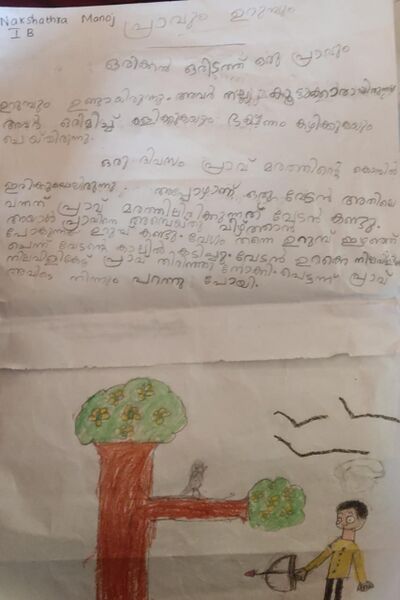 Nakshathra Manoj
I B
പ്രാവും ഉറുമ്പും
ഒരിക്കൽ ഒരിടത്ത് ഒരു പ്രാവും
ഉറുമ്പും ഉണ്ടായിരുന്നു. അവർ നല്ല കൂട്ടുക്കാരായിരുന്നു
അവർ ഒരുമിച്ച് കളിക്കുകയും ഭക്ഷണം കഴിക്കുകയും
ചെയ്തിരുന്നു.
ഒരു ദിവസം പ്രാവ് മരത്തിന്റെ കൊമ്പിൽ
ഇരിക്കുകയായിരുന്നു. അപ്പോഴാണ് ഒരു വേടൻ അതിലെ
വന്നത് പ്രാവ് മരത്തിലിരിക്കുന്നത് വേടൻ കണ്ടു.
അയാൾ പ്രാവിനെ അമ്പെയ്തു വീഴ്ത്താൻ
പോകുന്നത് ഉറുമ്പ് കണ്ടു. വേഗം തന്നെ ഉറുമ്പ് ഇഴഞ്ഞ്
ചെന്ന് വേടന്റെ കാലിൽ കടിച്ചു. വേടൻ ഉറക്കെ
നിലവിളികേട്ട് പ്രാവ് തിരിഞ്ഞു നോക്കി. പെട്ടന്ന് പ്രാവ്
അവിടെ നിന്നും പറന്നു പോയി.